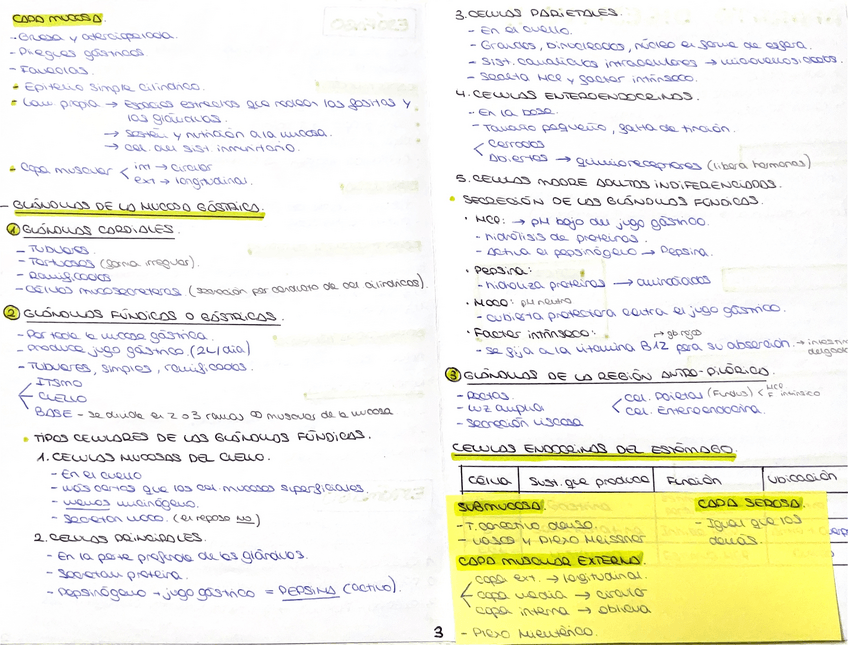 CAPA MUCOSA.
- Gruesa y
- Pliegues gástricos
- Foveolas.
- Epitelio simple cilíndrico.
- Lam propia → espacios estrechos que rodean las fositas y
las glándulas.
→ Sostén y nutrición a la mucosa.
→ cel. del sist. inmunitario.
- Capa muscular < int → circular
ext → longitudinal.
- GLÁNDULAS DE LA MUCOSA GÁSTRICA.
1 GLÁNDULAS CARDIALES.
- Tubulares.
- Tortuosas (forma irregular).
- Ramificadas
- Células mucosecretoras (secreción por conducto de cel cilíndricas).
2 GLÁNDULAS FÚNDICAS O GÁSTRICAS.
- Por toda la mucosa gástrica.
- produce jugo gástrico. (2L/día)
- Tubulares, simples, ramificadas.
ITSMO
CUELLO
BASE - se divide en 2 o 3 ramas ∞ muscular de la mucosa
• TIPOS CELULARES DE LAS GLÁNDULAS FÚNDICAS.
1. CELULAS MUCOSAS DEL CUELLO.
- En el cuello
- más cortas que las cel. mucosas superficiales.
- menos mucinógeno.
- Secretan moco. (en reposo NO)
2. CELULAS PRINCIPALES.
- En la parte profunda de las glándulas.
- Secretan proteína.
- Pepsinógeno + jugo gástrico = PEPSINA (activo).
3. CELULAS PARIETALES.
- En el cuello.
- Grandes, binucleadas, núcleo en forma de esfera.
- Sist. canalículos intracelulares → microvellosidades.
- Secreta HCl y factor intrínseco.
4. CELULAS ENTEROENDOCRINAS.
- En la base.
- Tamaño pequeño, falta de tinción.
< Cerradas
Abiertas → quimiorreceptores (libera hormonas)
5. CELULAS MADRE ADULTAS INDIFERENCIADAS.
• SECRECIÓN DE LAS GLÁNDULAS FÚNDICAS.
· HCl: → pH bajo del jugo gástrico.
- hidrólisis de proteínas.
- Activa el pepsinógeno → Pepsina.
· Pepsina:
- hidroliza proteínas → aminoácidos
· Moco: pH neutro
- cubierta protectora contra el jugo gástrico.
· Factor intrínseco:
- se fija a la vitamina B12 para su absorción. → intestino
delgado
3 GLÁNDULAS DE LA REGIÓN ANTRO-PILÓRICA.
- Rectas.
- luz amplia
- Secreción viscosa
< cel. Parietal (Fundus) < HCl
F. intrínseco
cel. Enteroendocrina.
CELULAS ENDOCRINAS DEL ESTÓMAGO.
Célula Sust. que produce Función Ubicación
SUBMUCOSA.
- T. conectivo denso.
- Vasos y Plexo Meissner
CAPA SEROSA.
- Igual que las
demás.
CAPA MUSCULAR EXTERNA.
capa ext. → longitudinal.
capa media → circular
capa interna → oblicua
- Plexo Mientérico.
3